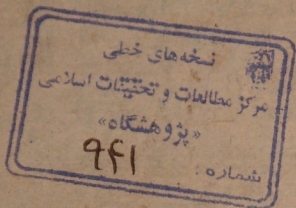 نسخه‌های خطی
مرکز مطالعات و تحقیقات اسلامی
«پژوهشگاه»
شماره: ۹۴۱